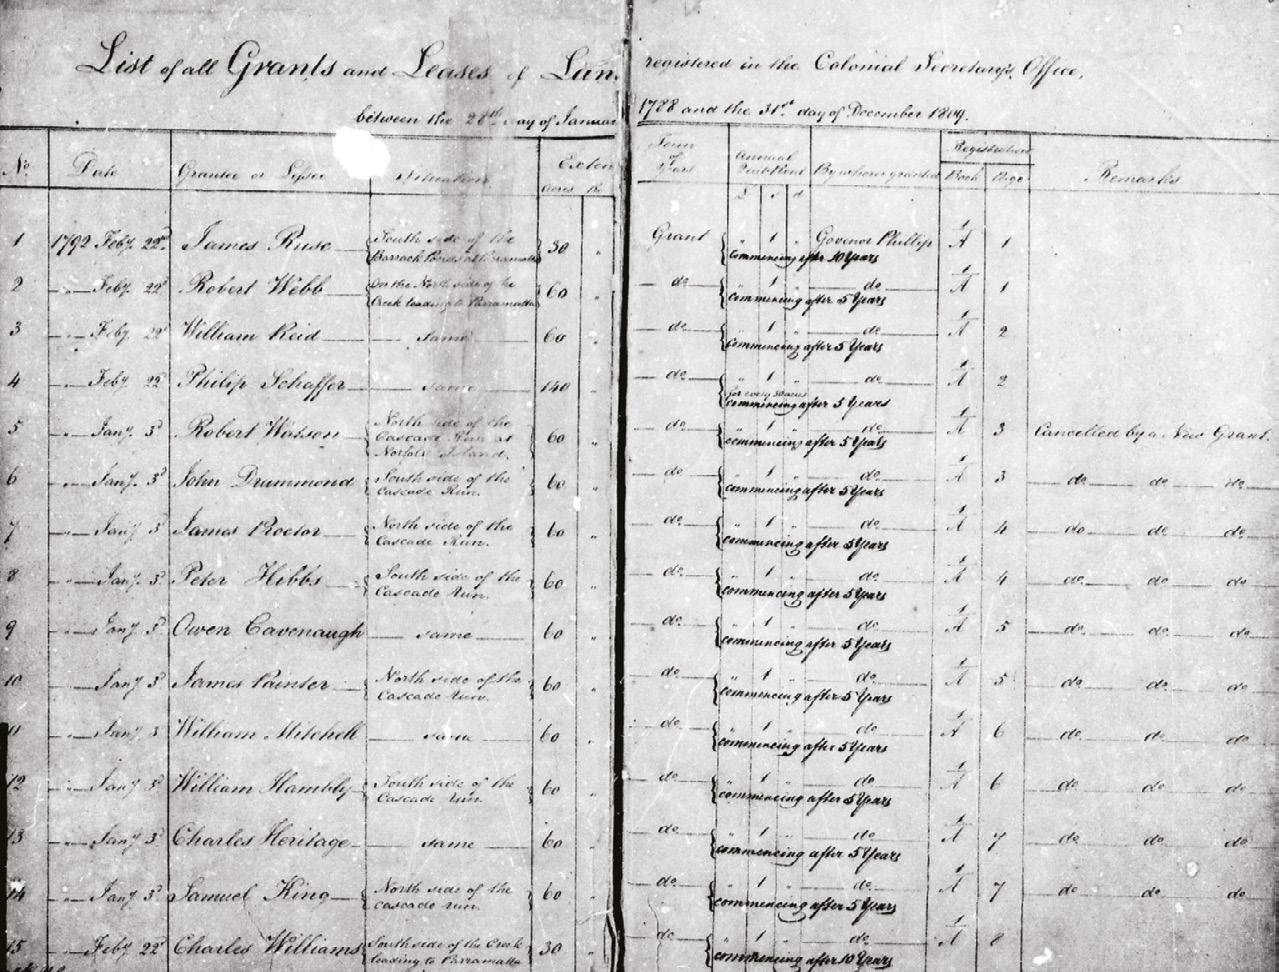 List of all Grants and Leases of Lan registered in the Colonial Secretary's Office,
between the 28th day of Januar 1788 and the 31st day of December 1809.
No. Date Grantee or Lessee Situation Exten Term of Years Annual Quit Rent By whom granted Registration Remarks
Acres Ro £ s d Book Page
1 1792 Feby. 22d James Ruse South side of the Barrack Ponds at Parramatta 30 " Grant " 1 " Govenor Phillip 1/A 1
commencing after 10 Years
2 " Feby. 22d Robert Webb On the North side of the Creek leading to Parramatta 60 " do " 1 " do 1/A 1
commencing after 5 Years
3 " Feby 22d William Reid same 60 " do " 1 " do 1/A 2
commencing after 5 Years
4 " Feby. 22d Philip Schaffer same 140 " do " 1 " do 1/A 2
for every 50 acres
commencing after 5 Years
5 " Jany. 3d Robert Watson North side of the Cascade Run at Norfolk Island. 60 " do " 1 " do 1/A 3 Cancelled by a New Grant.
commencing after 5 Years
6 " Jany. 3d John Drummond South side of the Cascade Run. 60 " do " 1 " do 1/A 3 do do do
commencing after 5 Years
7 " Jany 3d James Proctor North side of the Cascade Run. 60 " do " 1 " do 1/A 4 do do do
commencing after 5 Years
8 " Jany. 3d Peter Hibbs South side of the Cascade Run. 60 " do " 1 " do 1/A 4 do do do
commencing after 5 Years
9 " Jany 3d Owen Cavenaugh same 60 " do " 1 " do 1/A 5 do do do
commencing after 5 Years
10 " Jany 3d James Painter North side of the Cascade Run. 60 " do " 1 " do 1/A 5 do do do
commencing after 5 Years
11 " Jany 3 William Mitchell same 60 " do " 1 " do 1/A 6 do do do
commencing after 5 Years
12 " Jany 3d William Hambly South side of the Cascade Run. 60 " do " 1 " do 1/A 6 do do do
commencing after 5 Years
13 " Jany 3d Charles Heritage same 60 " do " 1 " do 1/A 7 do do do
commencing after 5 Years
14 " Jany 3d Samuel King North side of the Cascade Run. 60 " do " 1 " do 1/A 7 do do do
commencing after 5 Years
15 " Feby 22d Charles Williams South side of the Creek leading to Parramatta 30 " do " 1 " do 1/A 8
commencing after 10 Years